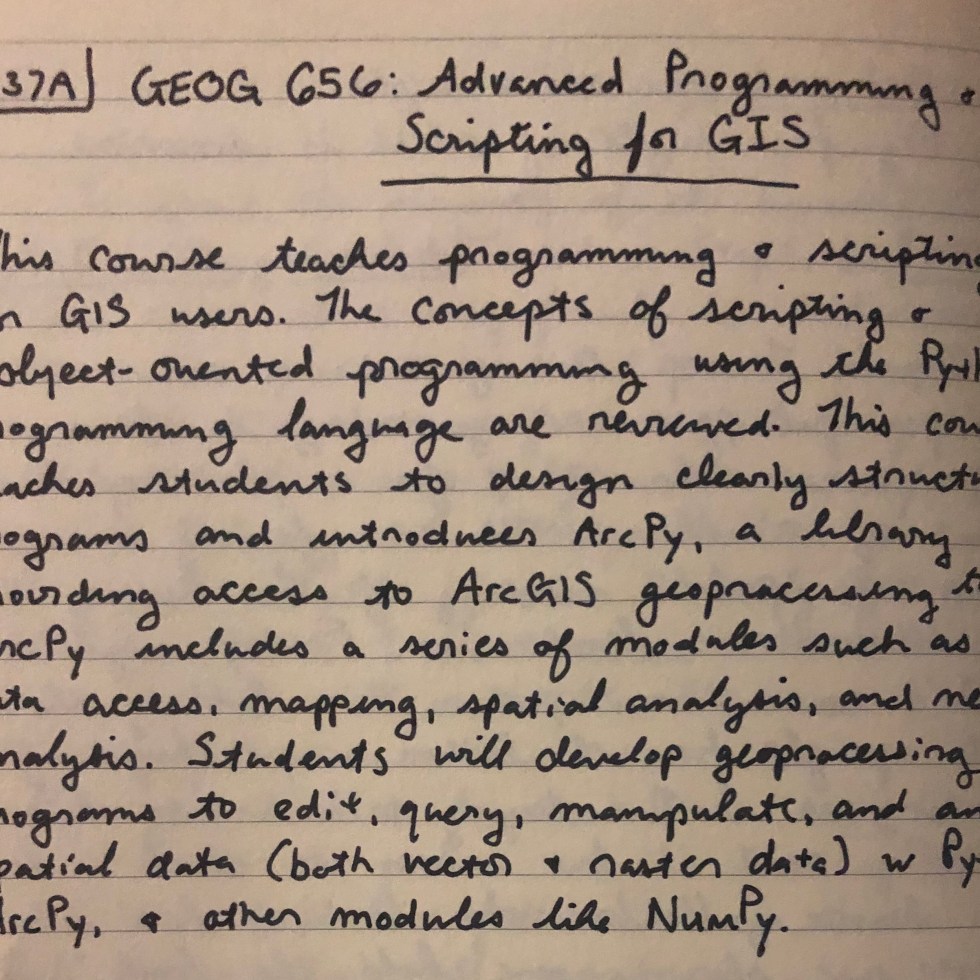 37A] GEOG 656: Advanced Programming &
Scripting for GIS
his course teaches programming & scripting
GIS users. The concepts of scripting &
object-oriented programming using the Pyth
ogramming language are reviewed. This cou
aches students to design clearly structu
ograms and introduces ArcPy, a library
oviding access to ArcGIS geoprocessing t
rcPy includes a series of modules such as
ta access, mapping, spatial analysis, and ne
nalysis. Students will develop geoprocessing
rograms to edit, query, manipulate, and an
patial data (both vector & raster data) w Py
ArcPy, & other modules like NumPy.